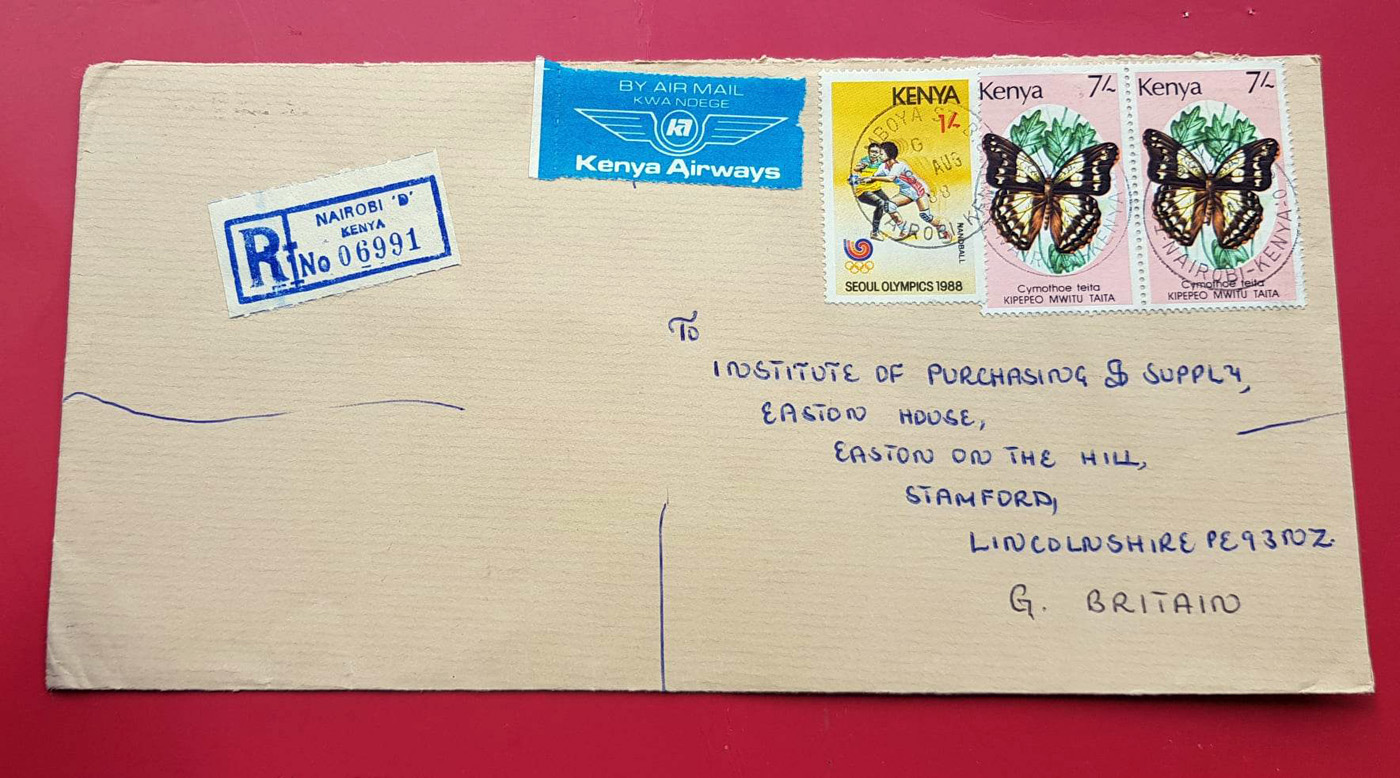 BY AIR MAIL
KWA NDEGE
Kenya Airways
R
NAIROBI 'D'
KENYA
No 06991
KENYA
1/-
HANDBALL
SEOUL OLYMPICS 1988
Kenya 7/-
Cymothoe teita
KIPEPEO MWITU TAITA
Kenya 7/-
Cymothoe teita
KIPEPEO MWITU TAITA
MBOYA ST
AUG
NAIROBI KENYA
NAIROBI-KENYA
To
INSTITUTE OF PURCHASING & SUPPLY,
EASTON HOUSE,
EASTON ON THE HILL,
STAMFORD,
LINCOLNSHIRE PE9 3NZ.
G. BRITAIN